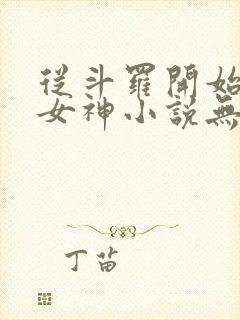 從斗羅開始
女神小說無
丁苗